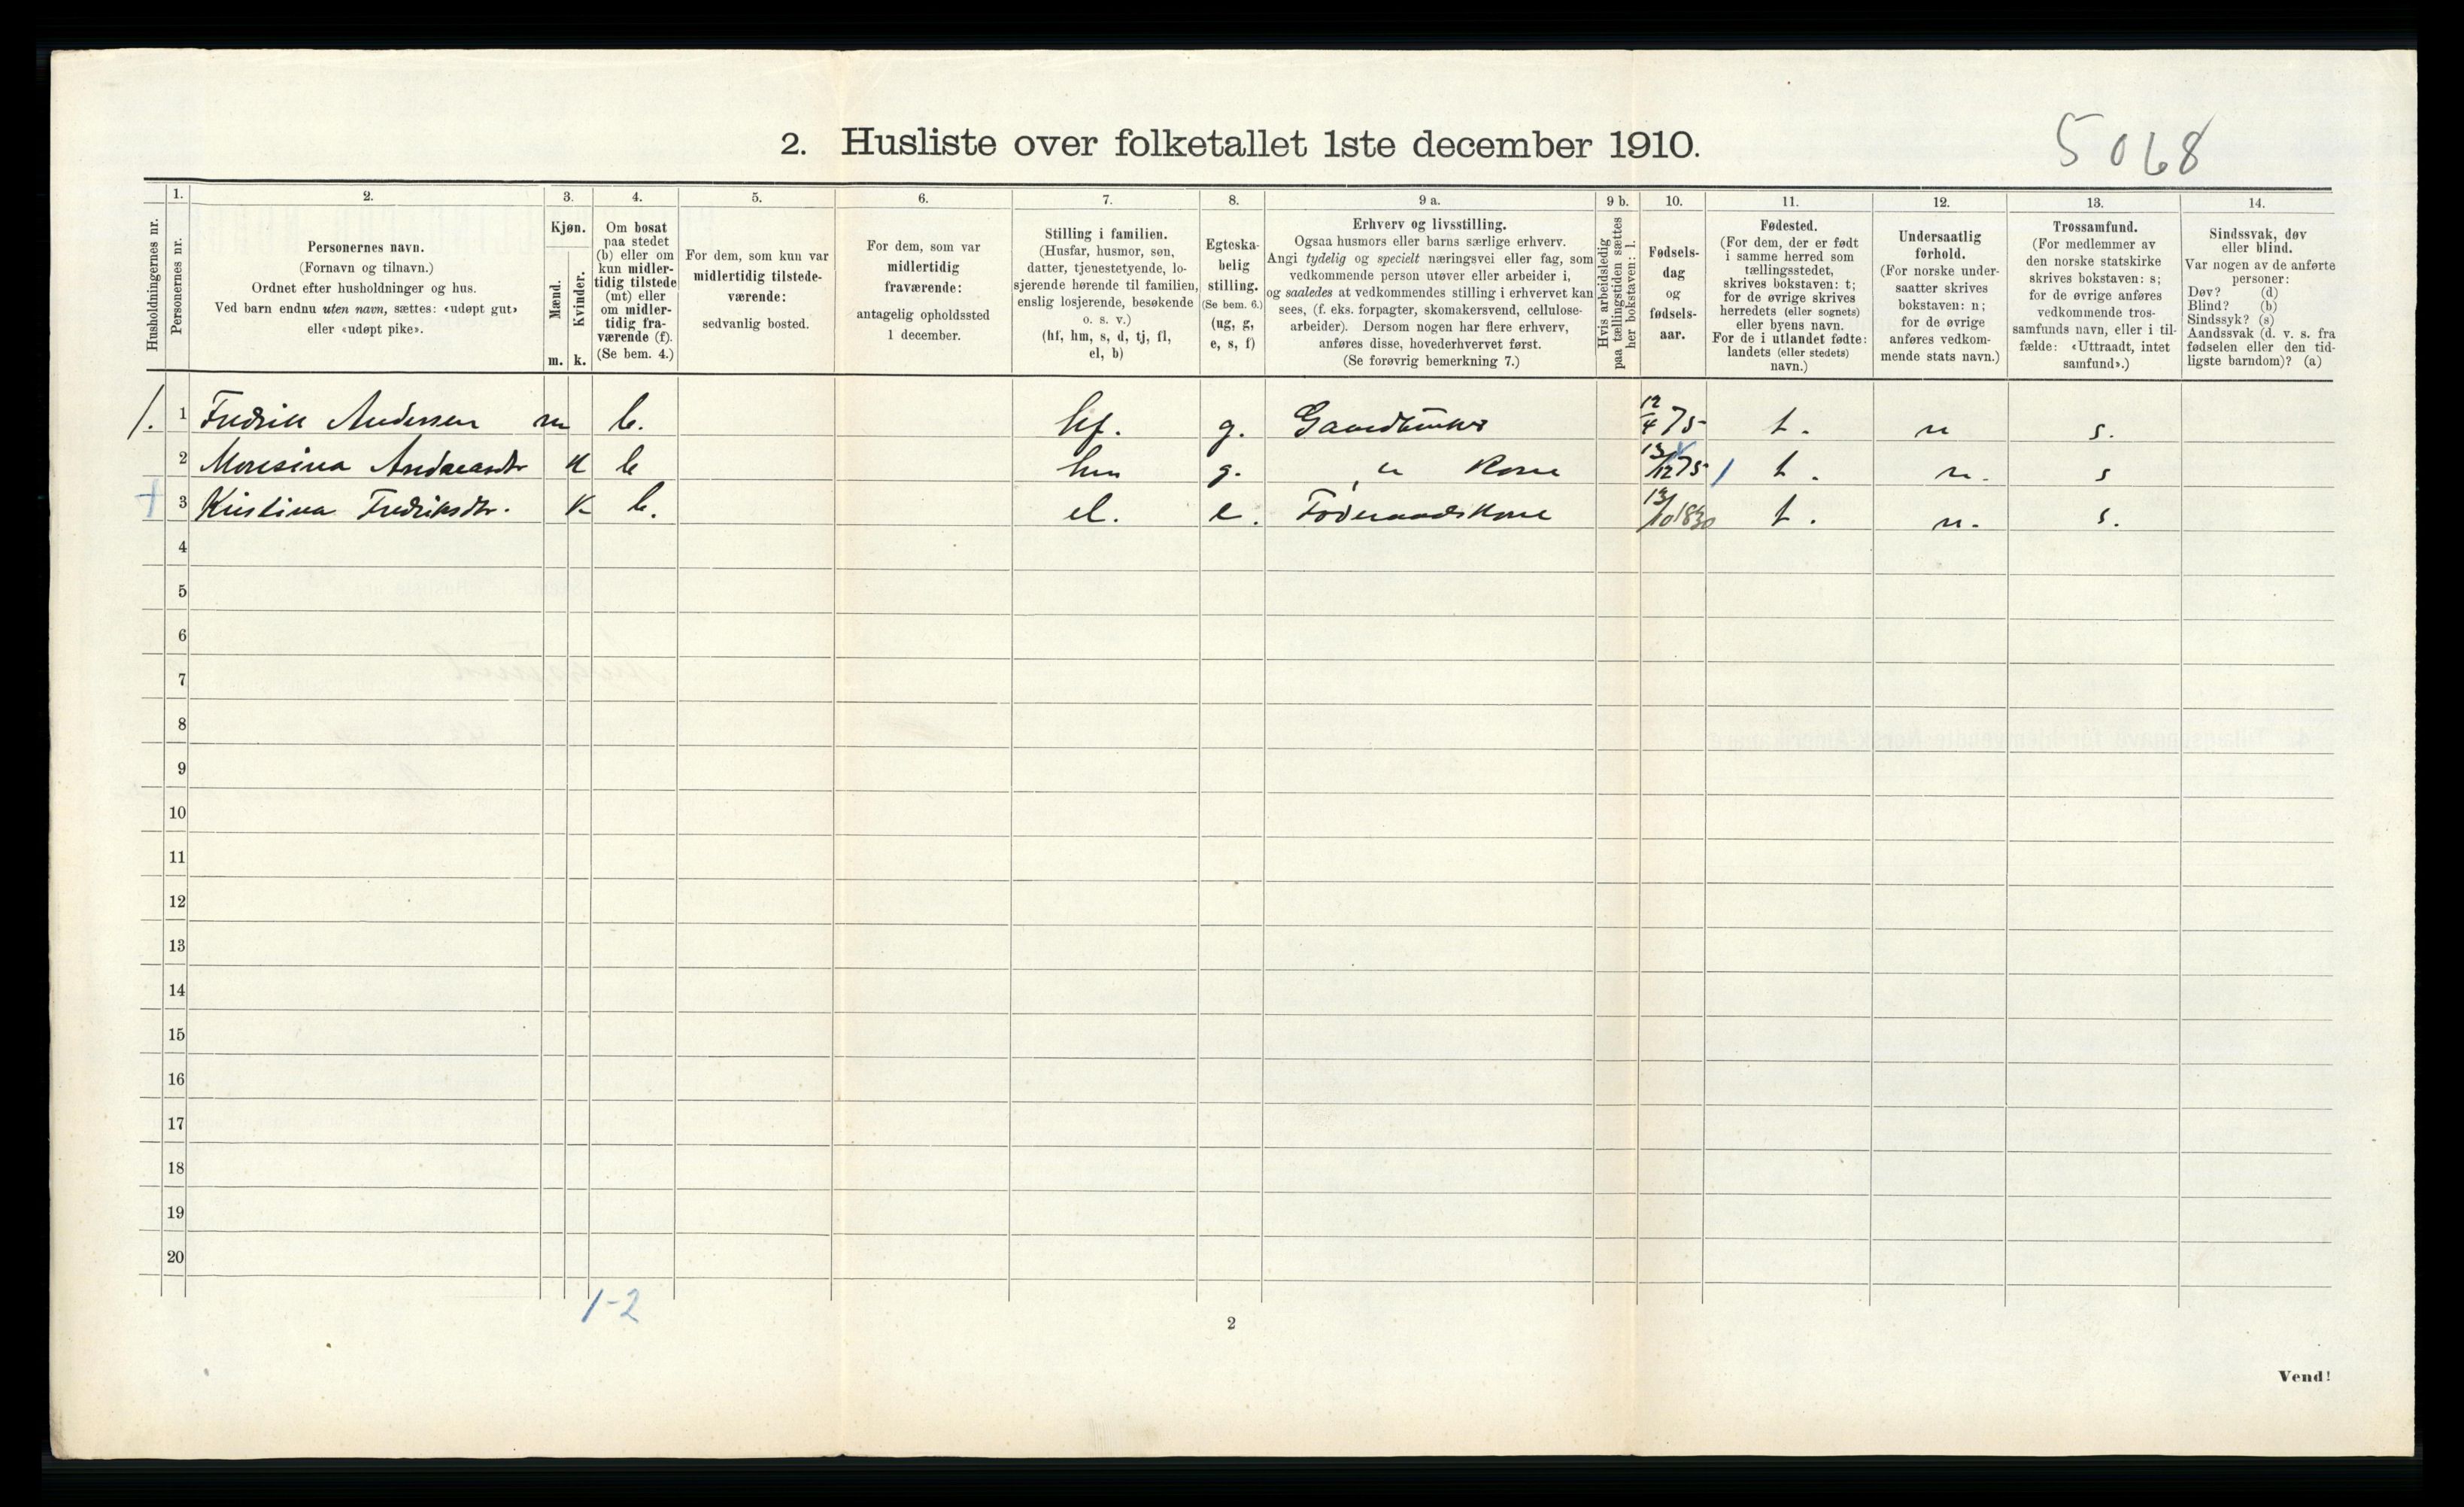 2. Husliste over folketallet 1ste december 1910.
5068
Husholdningernes nr.
1.
Personernes nr.
2.
Personernes navn.
(Fornavn og tilnavn.)
Ordnet efter husholdninger og hus.
Ved barn endnu uten navn, sættes: «udøpt gut»
eller «udøpt pike».
3.
Kjøn.
Mænd.
Kvinder.
m. k.
4.
Om bosat
paa stedet
(b) eller om
kun midler-
tidig tilstede
(mt) eller
om midler-
tidig fra-
værende (f).
(Se bem. 4.)
5.
For dem, som kun var
midlertidig tilstede-
værende:
sedvanlig bosted.
6.
For dem, som var
midlertidig
fraværende:
antagelig opholdssted
1 december.
7.
Stilling i familien.
(Husfar, husmor, søn,
datter, tjenestetyende, lo-
sjerende hørende til familien,
enslig losjerende, besøkende
o. s. v.)
(hf, hm, s, d, tj, fl,
el, b)
8.
Egteska-
belig
stilling.
(Se bem. 6.)
(ug, g,
e, s, f)
9 a.
Erhverv og livsstilling.
Ogsaa husmors eller barns særlige erhverv.
Angi tydelig og specielt næringsvei eller fag, som
vedkommende person utøver eller arbeider i,
og saaledes at vedkommendes stilling i erhvervet kan
sees, (f. eks. forpagter, skomakersvend, cellulose-
arbeider). Dersom nogen har flere erhverv,
anføres disse, hovederhvervet først.
(Se forøvrig bemerkning 7.)
9 b.
Hvis arbeidsledig
paa tællingstiden sættes
her bokstaven: l.
10.
Fødsels-
dag
og
fødsels-
aar.
11.
Fødested.
(For dem, der er født
i samme herred som
tællingsstedet,
skrives bokstaven: t;
for de øvrige skrives
herredets (eller sognets)
eller byens navn.
For de i utlandet fødte:
landets (eller stedets)
navn.)
12.
Undersaatlig
forhold.
(For norske under-
saatter skrives
bokstaven: n;
for de øvrige
anføres vedkom-
mende stats navn.)
13.
Trossamfund.
(For medlemmer av
den norske statskirke
skrives bokstaven: s;
for de øvrige anføres
vedkommende tros-
samfunds navn, eller i til-
fælde: «Uttraadt, intet
samfund».)
14.
Sindssvak, døv
eller blind.
Var nogen av de anførte
personer:
Døv? (d)
Blind? (b)
Sindssyk? (s)
Aandssvak (d. v. s. fra
fødselen eller den tid-
ligste barndom)? (a)
1. 1 Fredrik Andersen m b. hf. g. Gaardbruker 12/4 75 t. n s.
2 Andreasdtr k b hm g. " Kone 13/12 75 1 t. n. s
+ 3 Kristina Fredriksdtr. k b. el. e. Føderaadskone 13/10 1830 t. n. s.
4
5
6
7
8
9
10
11
12
13
14
15
16
17
18
19
20
1-2
2
Vend!